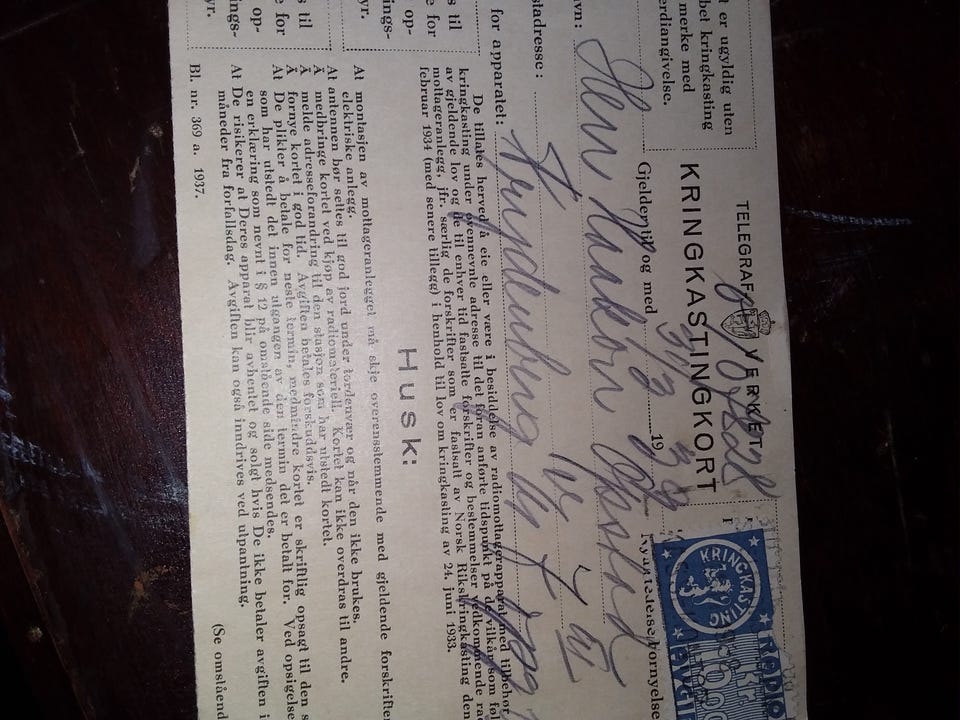 TELEGRAFVERKET
KRINGKASTINGKORT
t er ugyldig uten
bet kringkasting
merke med
erdiangivelse.
Gjelder til og med
31/3
19
39
KRINGKASTING
RADIO
AVGIFT
vn: Herr Haakon
stadresse:
for apparatet:
s til
e for
op-
ings-
yr.
De tillates herved å eie eller være i besiddelse av radiomottagerapparat med tilbehør
kringkasting under ovennevnte adresse til det foran anførte tidspunkt på de vilkår som føl
av gjeldende lov og de til enhver tid fastsatte forskrifter og bestemmelser vedkommende rad
mottageranlegg, jfr. særlig de forskrifter som er fastsatt av Norsk Rikskringkasting den
februar 1934 (med senere tillegg) i henhold til lov om kringkasting av 24. juni 1933.
Husk:
At montasjen av mottageranlegget må skje overensstemmende med gjeldende forskrifter
elektriske anlegg.
At antennen bør settes til god jord under tordenvær og når den ikke brukes.
Å medbringe kortet ved kjøp av radiomateriell. Kortet kan ikke overdras til andre.
Å melde adresseforandring til den stasjon som har utstedt kortet.
Å fornye kortet i god tid. Avgiften betales forskuddsvis.
At De plikter å betale for neste termin, medmindre kortet er skriftlig opsagt til den s
som har utstedt det innen utgangen av den termin det er betalt for. Ved opsigelse
en erklæring som nevnt i § 12 på omstående side medsendes.
At De risikerer at Deres apparat blir avhentet og solgt hvis De ikke betaler avgiften i
måneder fra forfallsdag. Avgiften kan også inndrives ved utpantning.
(Se omstående
Bl. nr. 369 a. 1937.
s til
e for
op-
ings-
yr.